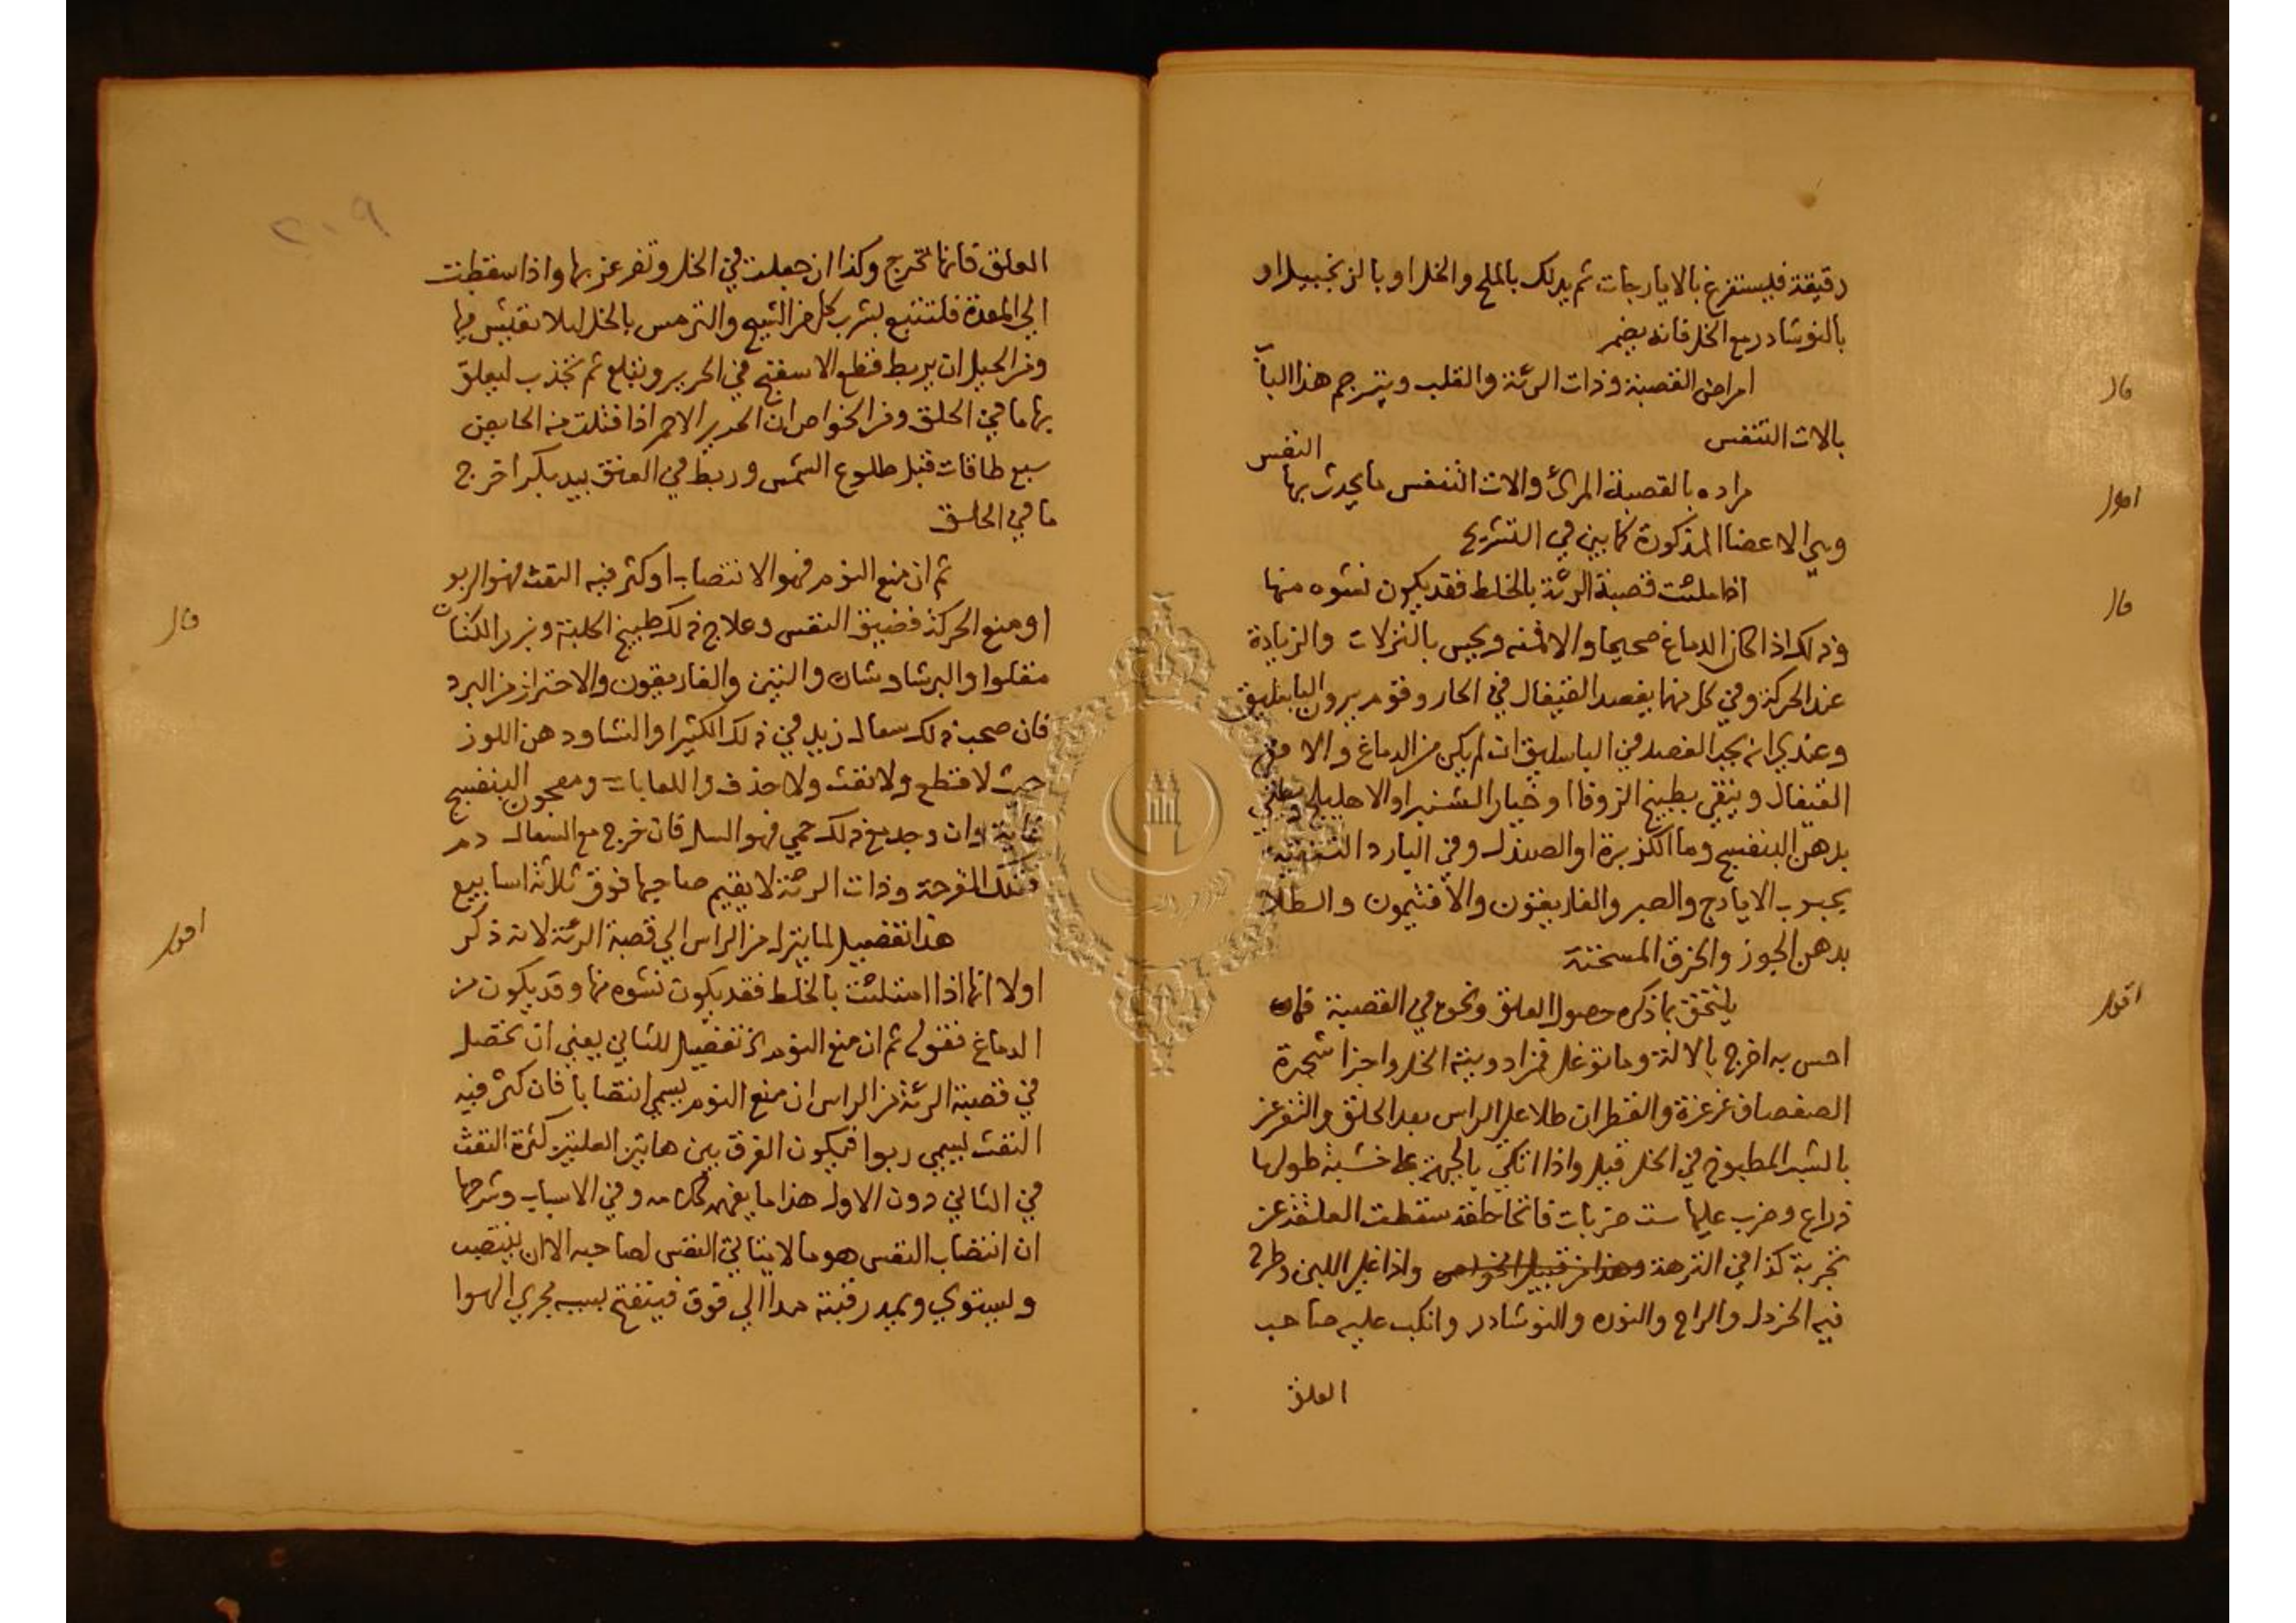 رقيقة فليستفرغ بالايارجات ثم يدلك بالملح والخل او بالزنجبيل او
بالنوشادر مع الخل فانه يضمر
قال
امراض القصبة وذات الرئة والقلب ويترجم هذا الباب
بالات التنفس
اقول
مراده بالقصبة المرئ والات التنفس ما يحدث بها النفس
وهي الاعضا المذكورة كما بين في التشريح
قال
اذا ملئت قصبة الرئة بالخلط فقد يكون نشوه منها
وذلك اذا كان الدماغ صحيحا والا فمنه ويحس بالنزلات والزيادة
عند الحركة وفي كل منهما يفصد القيفال في الحار وقوم يرون الباسليق
وعندي انه يجب الفصد في الباسليق ان لم يكن من الدماغ والا ففي
القيفال وينقي بطبيخ الزوفا او خيار الشنبر او الاهليلج ويطلي
بدهن البنفسج وما الكزبرة او الصندل وفي البارد التنقية
بحبوب الايارج والصبر والغاريقون والافتيمون والطلا
بدهن الجوز والخرق المسخنة
اقول
يلتحق بما ذكره حصول العلق ونحوه في القصبة فان
احس به اخرج بالالة وما توغل فمن ادويته الخل واجزا شجرة
الصفصاف غرغرة والقطران طلا على الراس بعد الحلق والتغرغر
بالشب المطبوخ في الخل قيل واذا اتكي بالجبهة على خشبة طولها
ذراع وضرب عليها ست ضربات فاتحا حلقه سقطت العلقة عن
تجربة كذا في النزهة وهذا من قبيل الخواص واذا غلي اللبن وطرح
فيه الخردل والراح والنوره والنوشادر وانكب عليه صاحب
العلق
٢٠٩
العلق فانها تخرج وكذا ان جعلت في الخل وتغرغر بها واذا سقطت
الى المعدة فلتتبع بشرب كل من الشيح والترمس بالخل ليلا تعشش فيها
ومن الحيل ان يربط قطع الاسفنج في الحرير ويبلع ثم تجذب ليعلق
بها ما في الحلق ومن الخواص ان الحرير الاحمر اذا فتلت منه الحايض
سبع طاقات قبل طلوع الشمس وربط في العنق بيد بكر اخرج
ما في الحلق
قال
ثم ان منع النوم فهو الانتصاب او كثر فيه النفث فهو الربو
او منع الحركة فضيق النفس وعلاج ذلك طبيخ الحلبة وبزر الكتان
مقلوا والبرشاوشان والتين والغاريقون والاحتراز من البرد
فان صحب ذلك سعال زيد في ذلك الكثيرا والنشا ودهن اللوز
حيث لا قطع ولا نفث ولا حذف واللعابات ومعجون البنفسج
غاية وان وجد مع ذلك حمي فهو السل فان خرج مع السعال دم
فتلك القرحة وذات الرئة لا يقيم صاحبها فوق ثلاثة اسابيع
اقول
هذا تفصيل لما ينزل من الراس الي قصبة الرئة لانه ذكر
اولا انها اذا امتلئت بالخلط فقد يكون نشوه منها وقد يكون من
الدماغ فقوله ثم ان منع النوم الخ تفصيل للثاني يعني ان تحصل
في قصبة الرئة من الراس ان منع النوم يسمي انتصابا فان كثر فيه
النفث يسمي ربوا فيكون الفرق بين هاتين العلتين كثرة النفث
في الثاني دون الاول هذا ما يفهم كلامه وفي الاسباب وشرحها
ان انتصاب النفس هو ما لا يتاتي النفس لصاحبه الا ان ينتصب
ويستوي ويمد رقبته مدا الي فوق فينفتح بسببه مجري الهوا